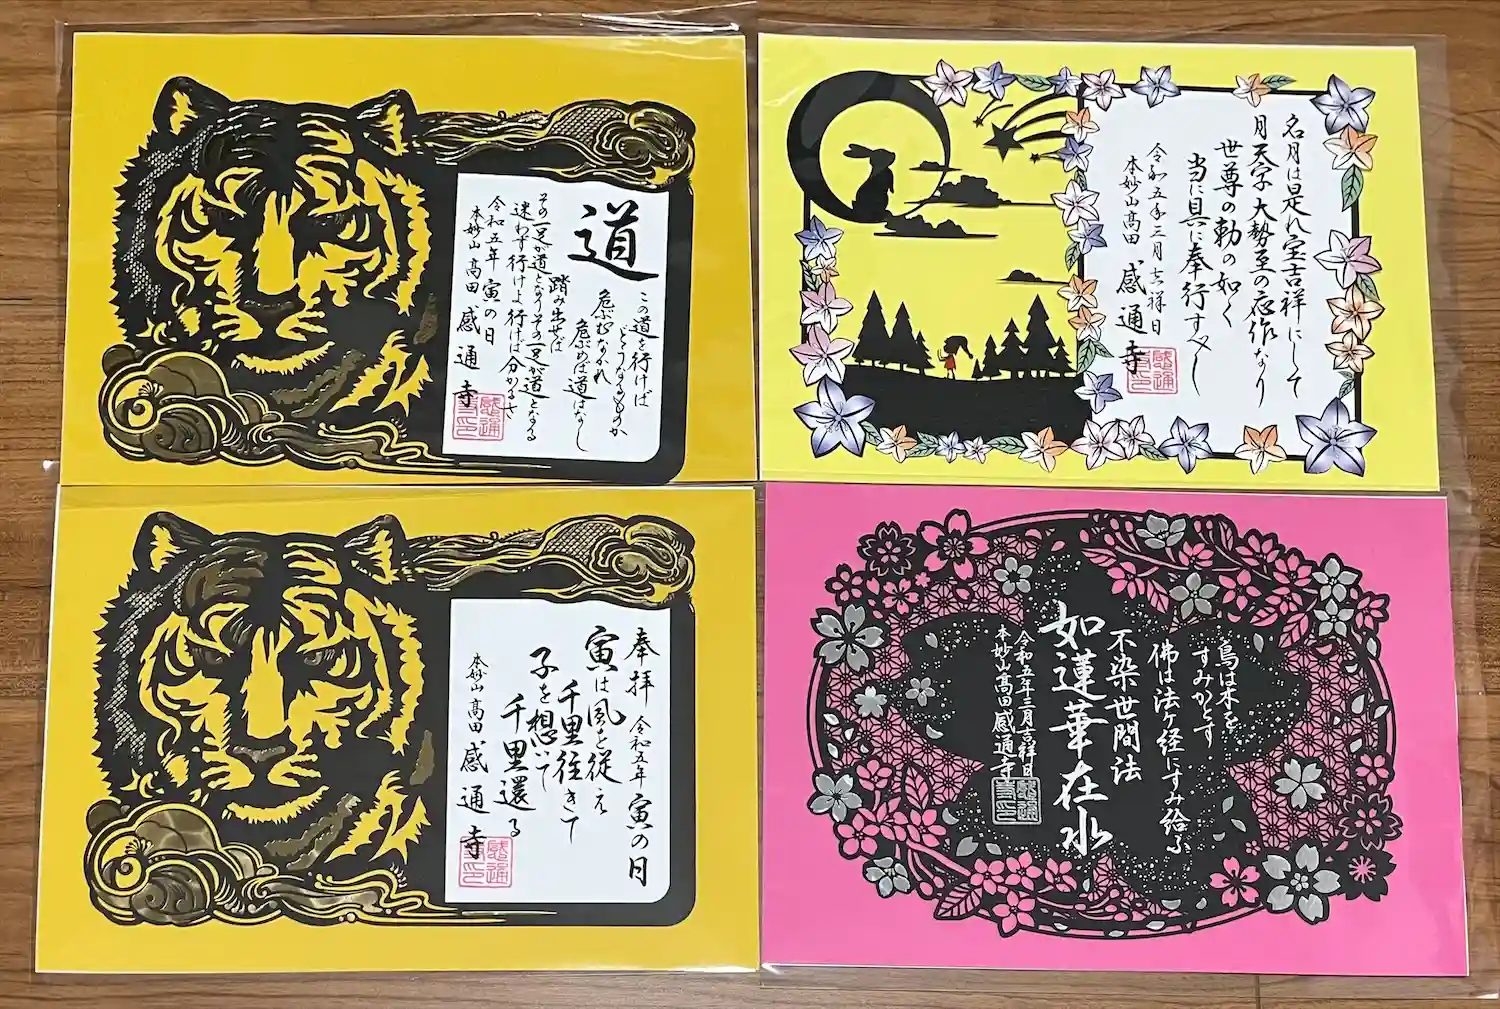 道
この道を行けば
どうなるものか
危ぶむなかれ
危ぶめば道はなし
踏み出せば
その一足が道となりその一足が道となる
迷わず行けよ行けば分かるさ
令和五年寅の日
本妙山高田感通寺
名月は是れ宝吉祥にして
月天子大勢至の応作なり
世尊の勅の如く
当に具に奉行すべし
令和五年三月吉祥日
本妙山高田感通寺
奉拝 令和五年寅の日
寅は風を従え
千里往きて
子を想いて
千里還る
本妙山高田感通寺
鳥は木を
すみかとす
佛は法ヶ経にすみ給ふ
不染世間法
如蓮華在水
令和五年三月吉祥日
本妙山高田感通寺